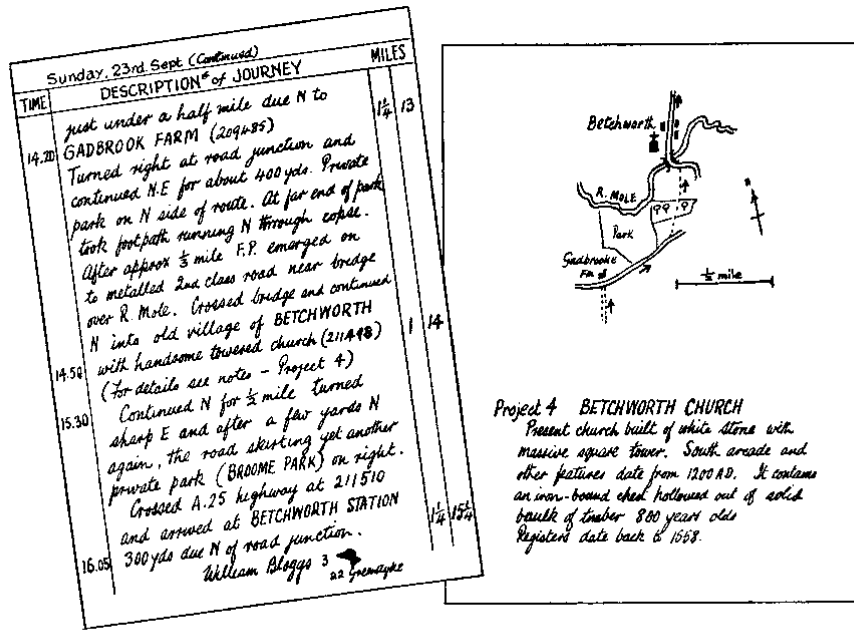 Sunday, 23rd. Sept (Continued)
TIME
DESCRIPTION of JOURNEY
MILES
just under a half mile due N to
1 1/4 13
14.20 GADBROOK FARM (209485)
Turned right at road junction and
continued N.E for about 400 yds. Private
park on N side of route. At far end of park
took footpath running N through copse.
After approx 1/3 mile F.P. emerged on
to metalled 2nd class road near bridge
over R. Mole. Crossed bridge and continued
N into old village of BETCHWORTH
1 14
14.50 with handsome towered church (211498)
(for details see notes - Project 4)
15.30 Continued N for 1/2 mile turned
sharp E and after a few yards N
again, the road skirting yet another
private park (BROOME PARK) on right.
Crossed A.25 highway at 211510
and arrived at BETCHWORTH STATION
1 1/4 15 1/4
16.05 300 yds due N of road junction.
William Bloggs 3
22
Betchworth
R. MOLE
Park
Gadbrooke
Fm
1/2 mile
Project 4 BETCHWORTH CHURCH
Present church built of white stone with
massive square tower. South arcade and
other features date from 1200 AD. It contains
an iron-bound chest hollowed out of solid
baulk of timber 800 years old
Registers date back to 1558.